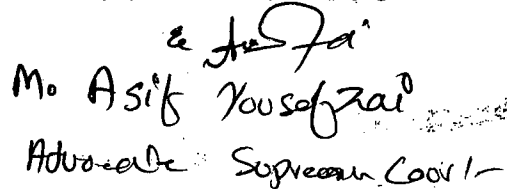 &
M. Asif Yousafzai
Advocate Supreme Court